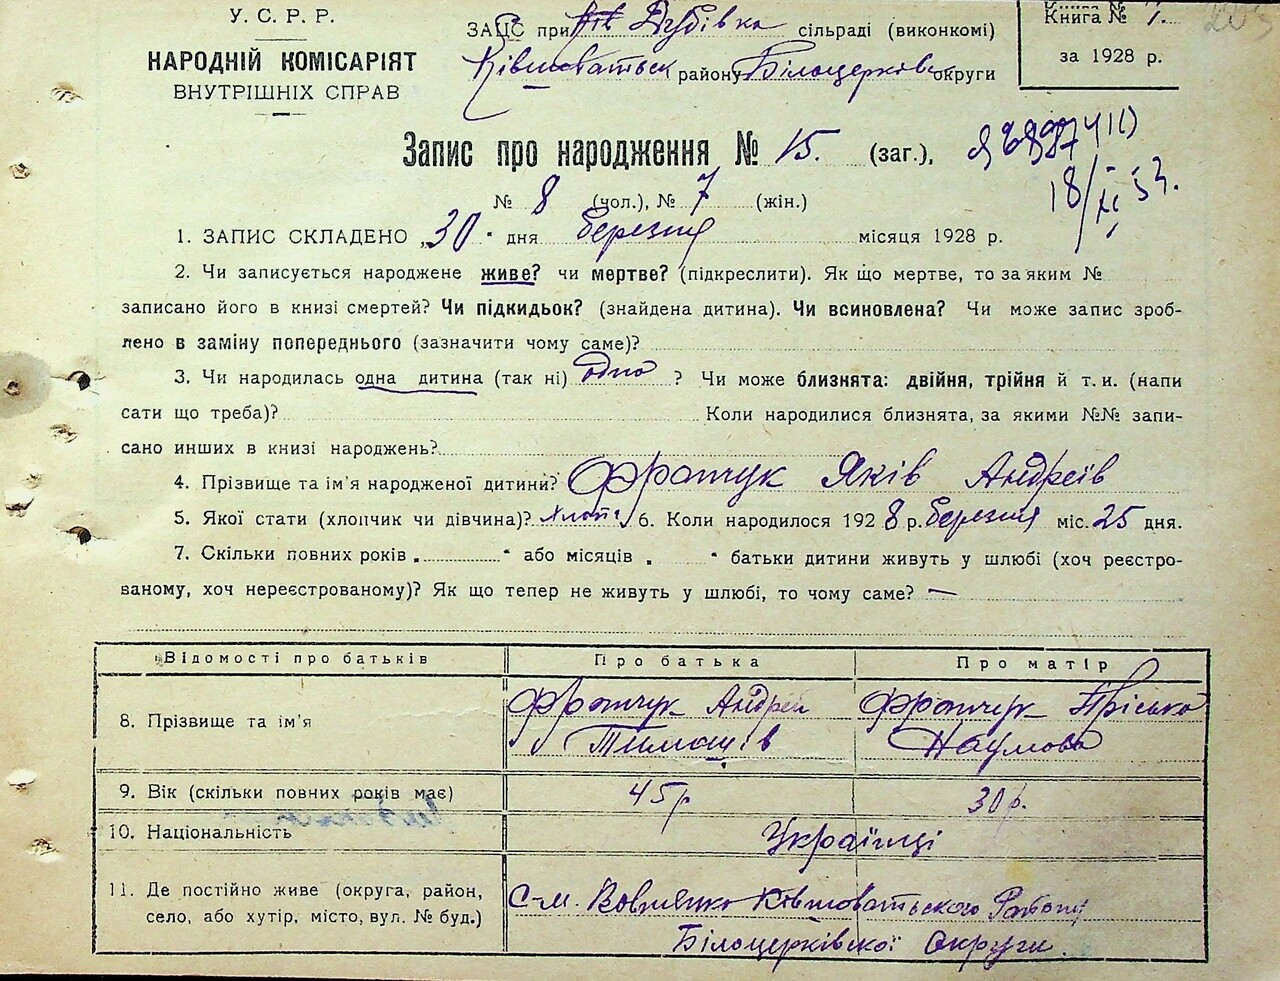 У. С. Р. Р.
НАРОДНІЙ КОМІСАРІЯТ
ВНУТРІШНІХ СПРАВ
ЗАЦС при Дубівка сільраді (виконкомі)
Ківшоватськ району Білоцерківськ округи
Книга № 1.
за 1928 р.
Запис про народження № 15. (заг.),
№ 8 (чол.), № 7 (жін.)
18/XI 53.
1. ЗАПИС СКЛАДЕНО „30" дня березня місяця 1928 р.
2. Чи записується народжене живе? чи мертве? (підкреслити). Як що мертве, то за яким №
записано його в книзі смертей? Чи підкидьок? (знайдена дитина). Чи всиновлена? Чи може запис зроб-
лено в заміну попереднього (зазначити чому саме)?
3. Чи народилась одна дитина (так ні) одно ? Чи може близнята: двійня, трійня й т. и. (напи
сати що треба)? Коли народилися близнята, за якими №№ запи-
сано инших в книзі народжень?
4. Прізвище та ім'я народженої дитини? Яків Андреїв
5. Якої стати (хлопчик чи дівчина)? хлоп. 6. Коли народилося 1928 р. березня міс. 25 дня.
7. Скільки повних років „ " або місяців „ " батьки дитини живуть у шлюбі (хоч реєстро-
ваному, хоч нереєстрованому)? Як що тепер не живуть у шлюбі, то чому саме? —
Відомості про батьків Про батька Про матір
8. Прізвище та ім'я
Андрей
Тимошів
Пріська
Наумова
9. Вік (скільки повних років має) 45 р 30 р.
10. Національність Українці
11. Де постійно живе (округа, район,
село, або хутір, місто, вул. № буд.)
С-м. Ківшоватьского Району
Білоцерківскої Округи